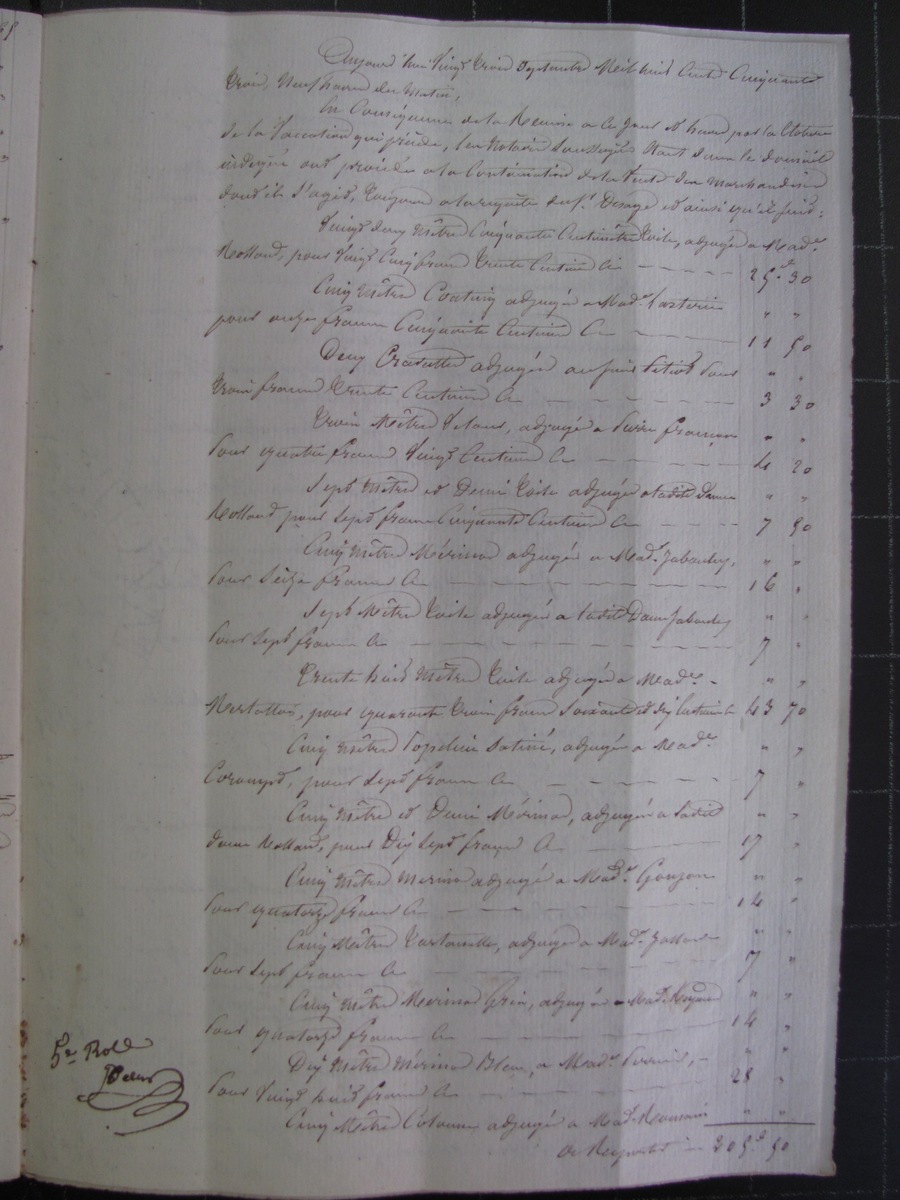 Aujourd'hui Vingt trois Septembre Mil huit Cent Cinquante
trois, Neuf heures du Matin,
En Conséquence de la Remise a ce Jour et heure par la Cloture
de la Vaccation qui précède, les Notaires Soussignés Etant dans le domicile
indiqué ont procédé a la Continuation de la Vente des Marchandises
dont il S'agit, toujours a la requête du Sr. et ainsi qu'il suit:
Vingt deux Mêtres Cinquante Centimètres toile, adjugés a Made.
Rolland, pour Vingt Cinq francs trente Centimes Ci 25f. 30
Cinq Mêtres adjugés a Made. " "
pour onze francs Cinquante Centimes Ci 11 50
Deux Cravattes adjugées au pour " "
trois francs trente Centimes Ci 3 30
trois Mêtres Velours, adjugés a " "
pour quatre francs Vingt Centimes Ci 4 20
Sept Mêtres et Demi toile adjugés a ladite Dame " "
Rolland pour Sept francs Cinquante Centimes Ci 7 50
Cinq Mêtres Mérinos adjugés a Made. " "
pour Seize francs Ci 16 "
Sept Mêtres toile adjugés a ladite Dame " "
pour Sept francs Ci 7 "
trente huit Mêtres toile adjugés a Made. " "
pour quarante trois francs Soixante et dix Centimes 43 70
Cinq Mêtres Popeline Satiné, adjugés a Made. " "
pour Sept francs Ci 7 "
Cinq Mêtres et Demi Mérinos, adjugés a Ladite " "
dame Rolland, pour Dix Sept francs Ci 17 "
Cinq Mêtres Mérinos adjugés a Made. Goujon " "
pour quatorze francs Ci 14 "
Cinq Mêtres adjugés a Made. " "
pour Sept francs Ci 7 "
Cinq Mêtres Mérinos Gris, adjugés a Made. " "
pour quatorze francs Ci 14 "
Dix Mêtres Mérinos Bleu, a Made. " "
pour Vingt huit francs Ci 28 "
Cinq Mêtres adjugés a Made. " "
a Reporter 205f. 50
5e Rolle